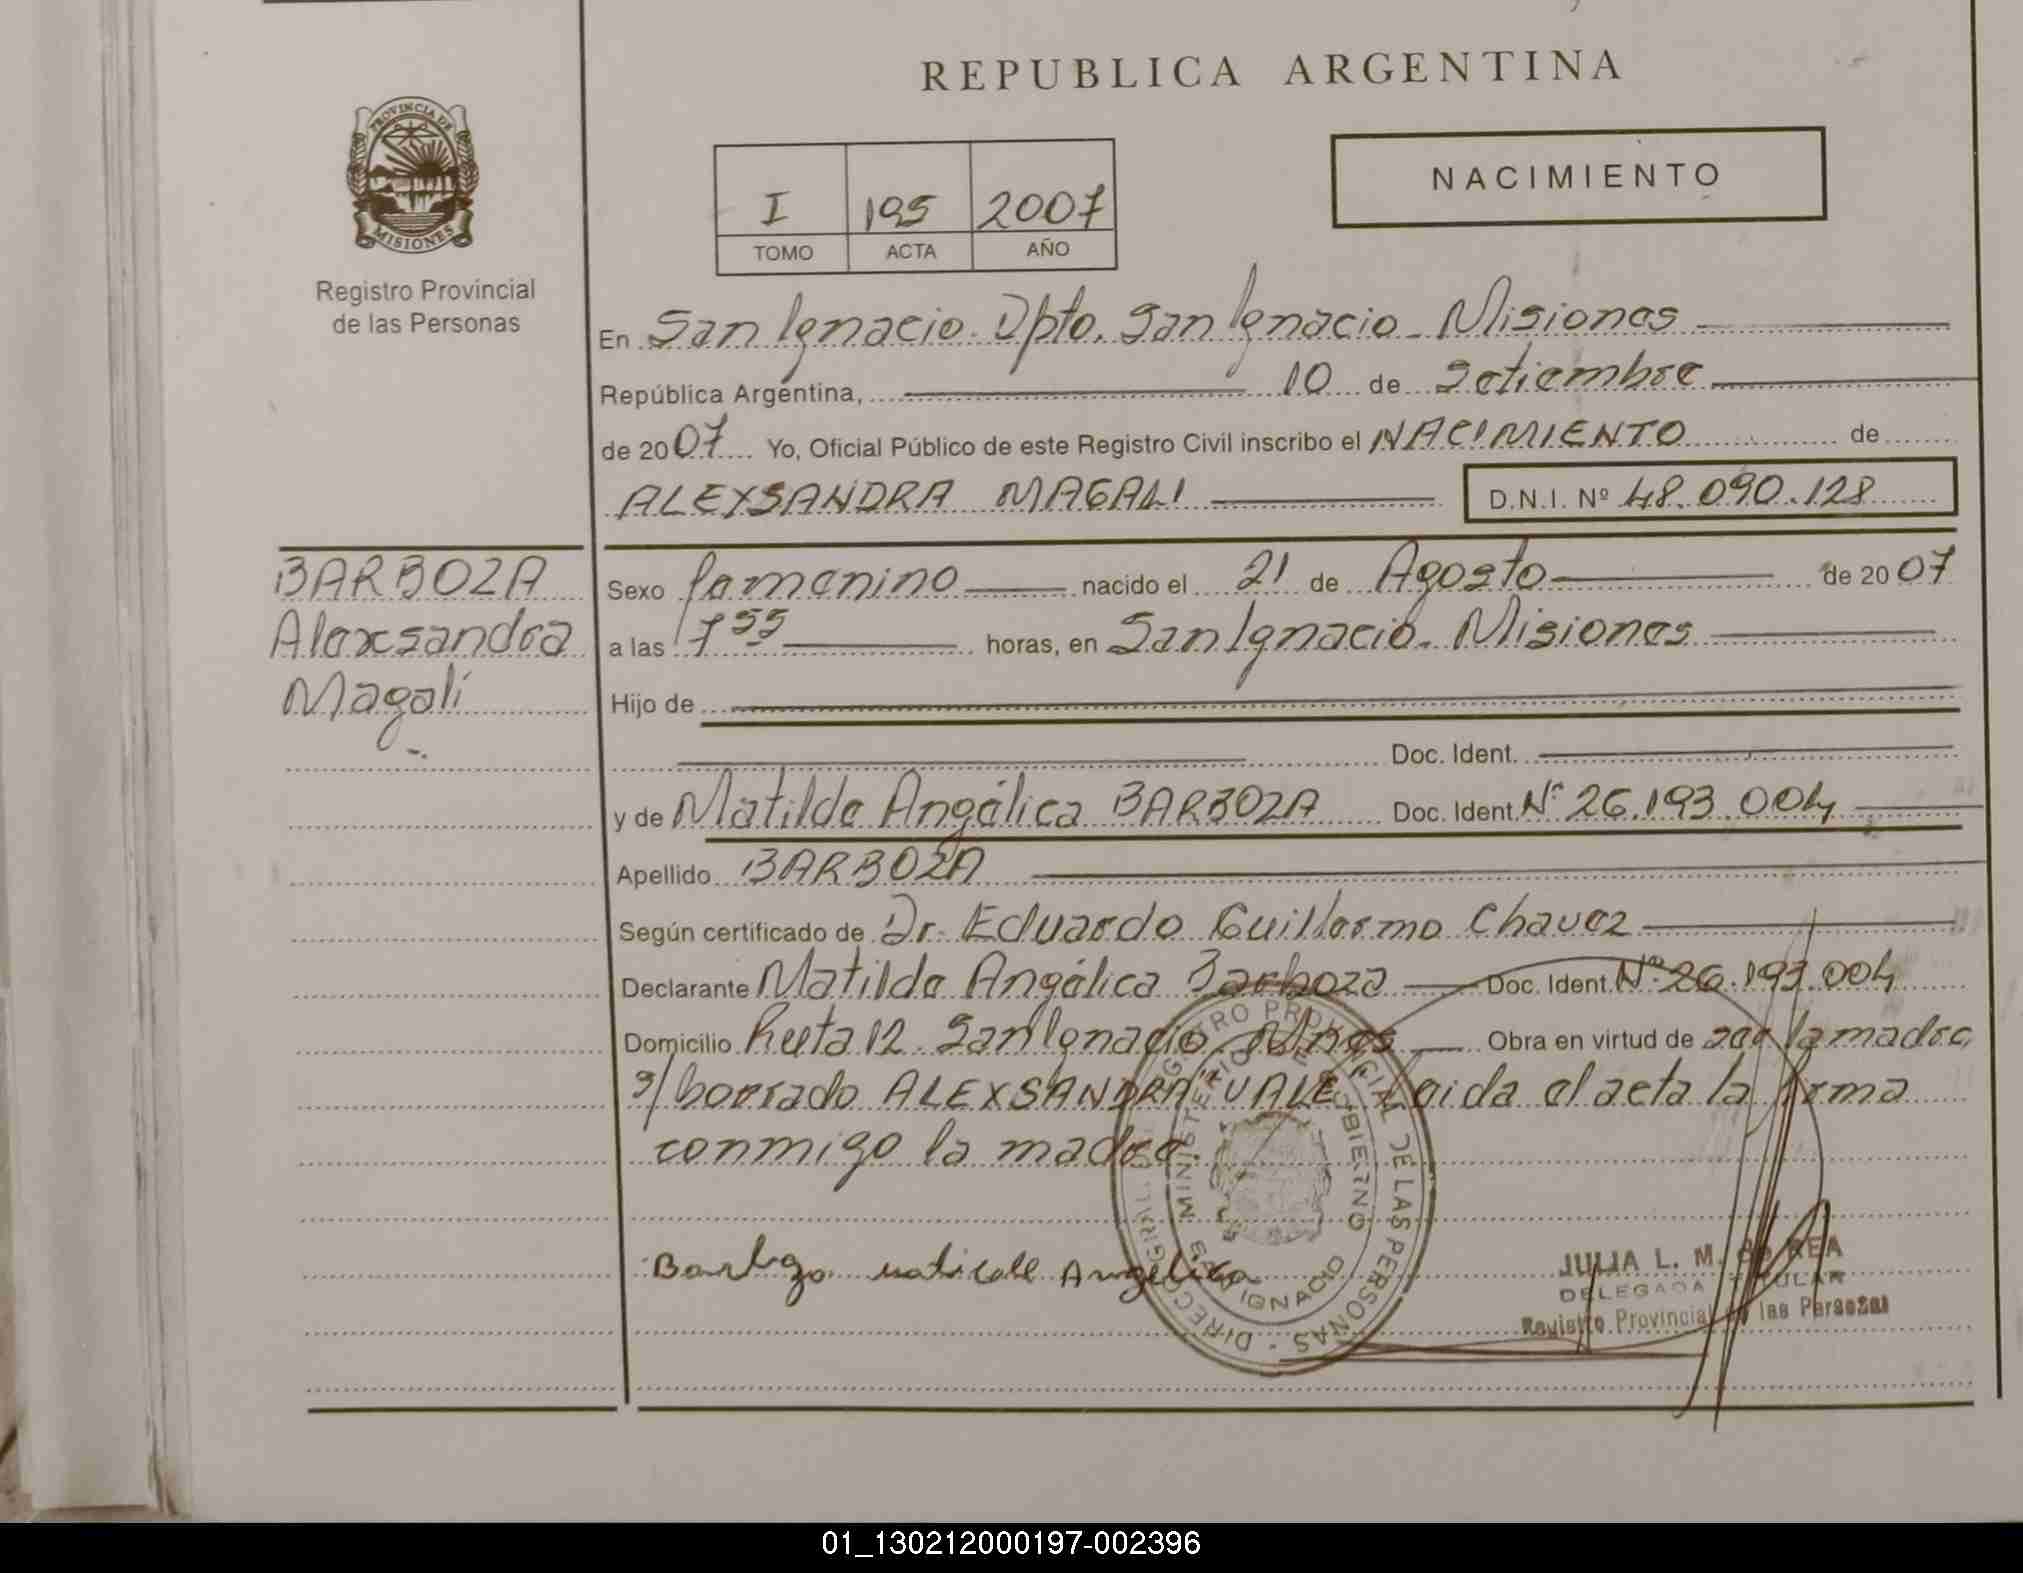 REPUBLICA ARGENTINA
PROVINCIA DE MISIONES
Registro Provincial
de las Personas
I 195 2007
TOMO ACTA AÑO
NACIMIENTO
En San Ignacio. Dpto. San Ignacio - Misiones
República Argentina, 10 de Setiembre
de 2007 Yo, Oficial Público de este Registro Civil inscribo el NACIMIENTO de
ALEXSANDRA MAGALI D.N.I. Nº 48.090.128
BARBOZA
Alexsandra
Magalí
Sexo femenino nacido el 21 de Agosto de 2007
a las 7 55 horas, en San Ignacio. Misiones
Hijo de
Doc. Ident.
y de Matilde Angélica BARBOZA Doc. Ident. Nº 26.193.004
Apellido BARBOZA
Según certificado de Dr. Eduardo Guillermo Chavez
Declarante Matilde Angélica Barboza Doc. Ident. Nº 26.193.004
Domicilio Ruta 12 San Ignacio, Mnes Obra en virtud de ser la madre,
s/ borrado ALEXSANDRA "VALE" Leida el acta la firma
conmigo la madre.
Barboza Angélica
DIRECC. GRAL. DEL REGISTRO PROVINCIAL DE LAS PERSONAS
MINISTERIO DE GOBIERNO
SAN IGNACIO
JULIA L. M. de REA
DELEGADA TITULAR
Registro Provincial de las Personas
01_130212000197-002396